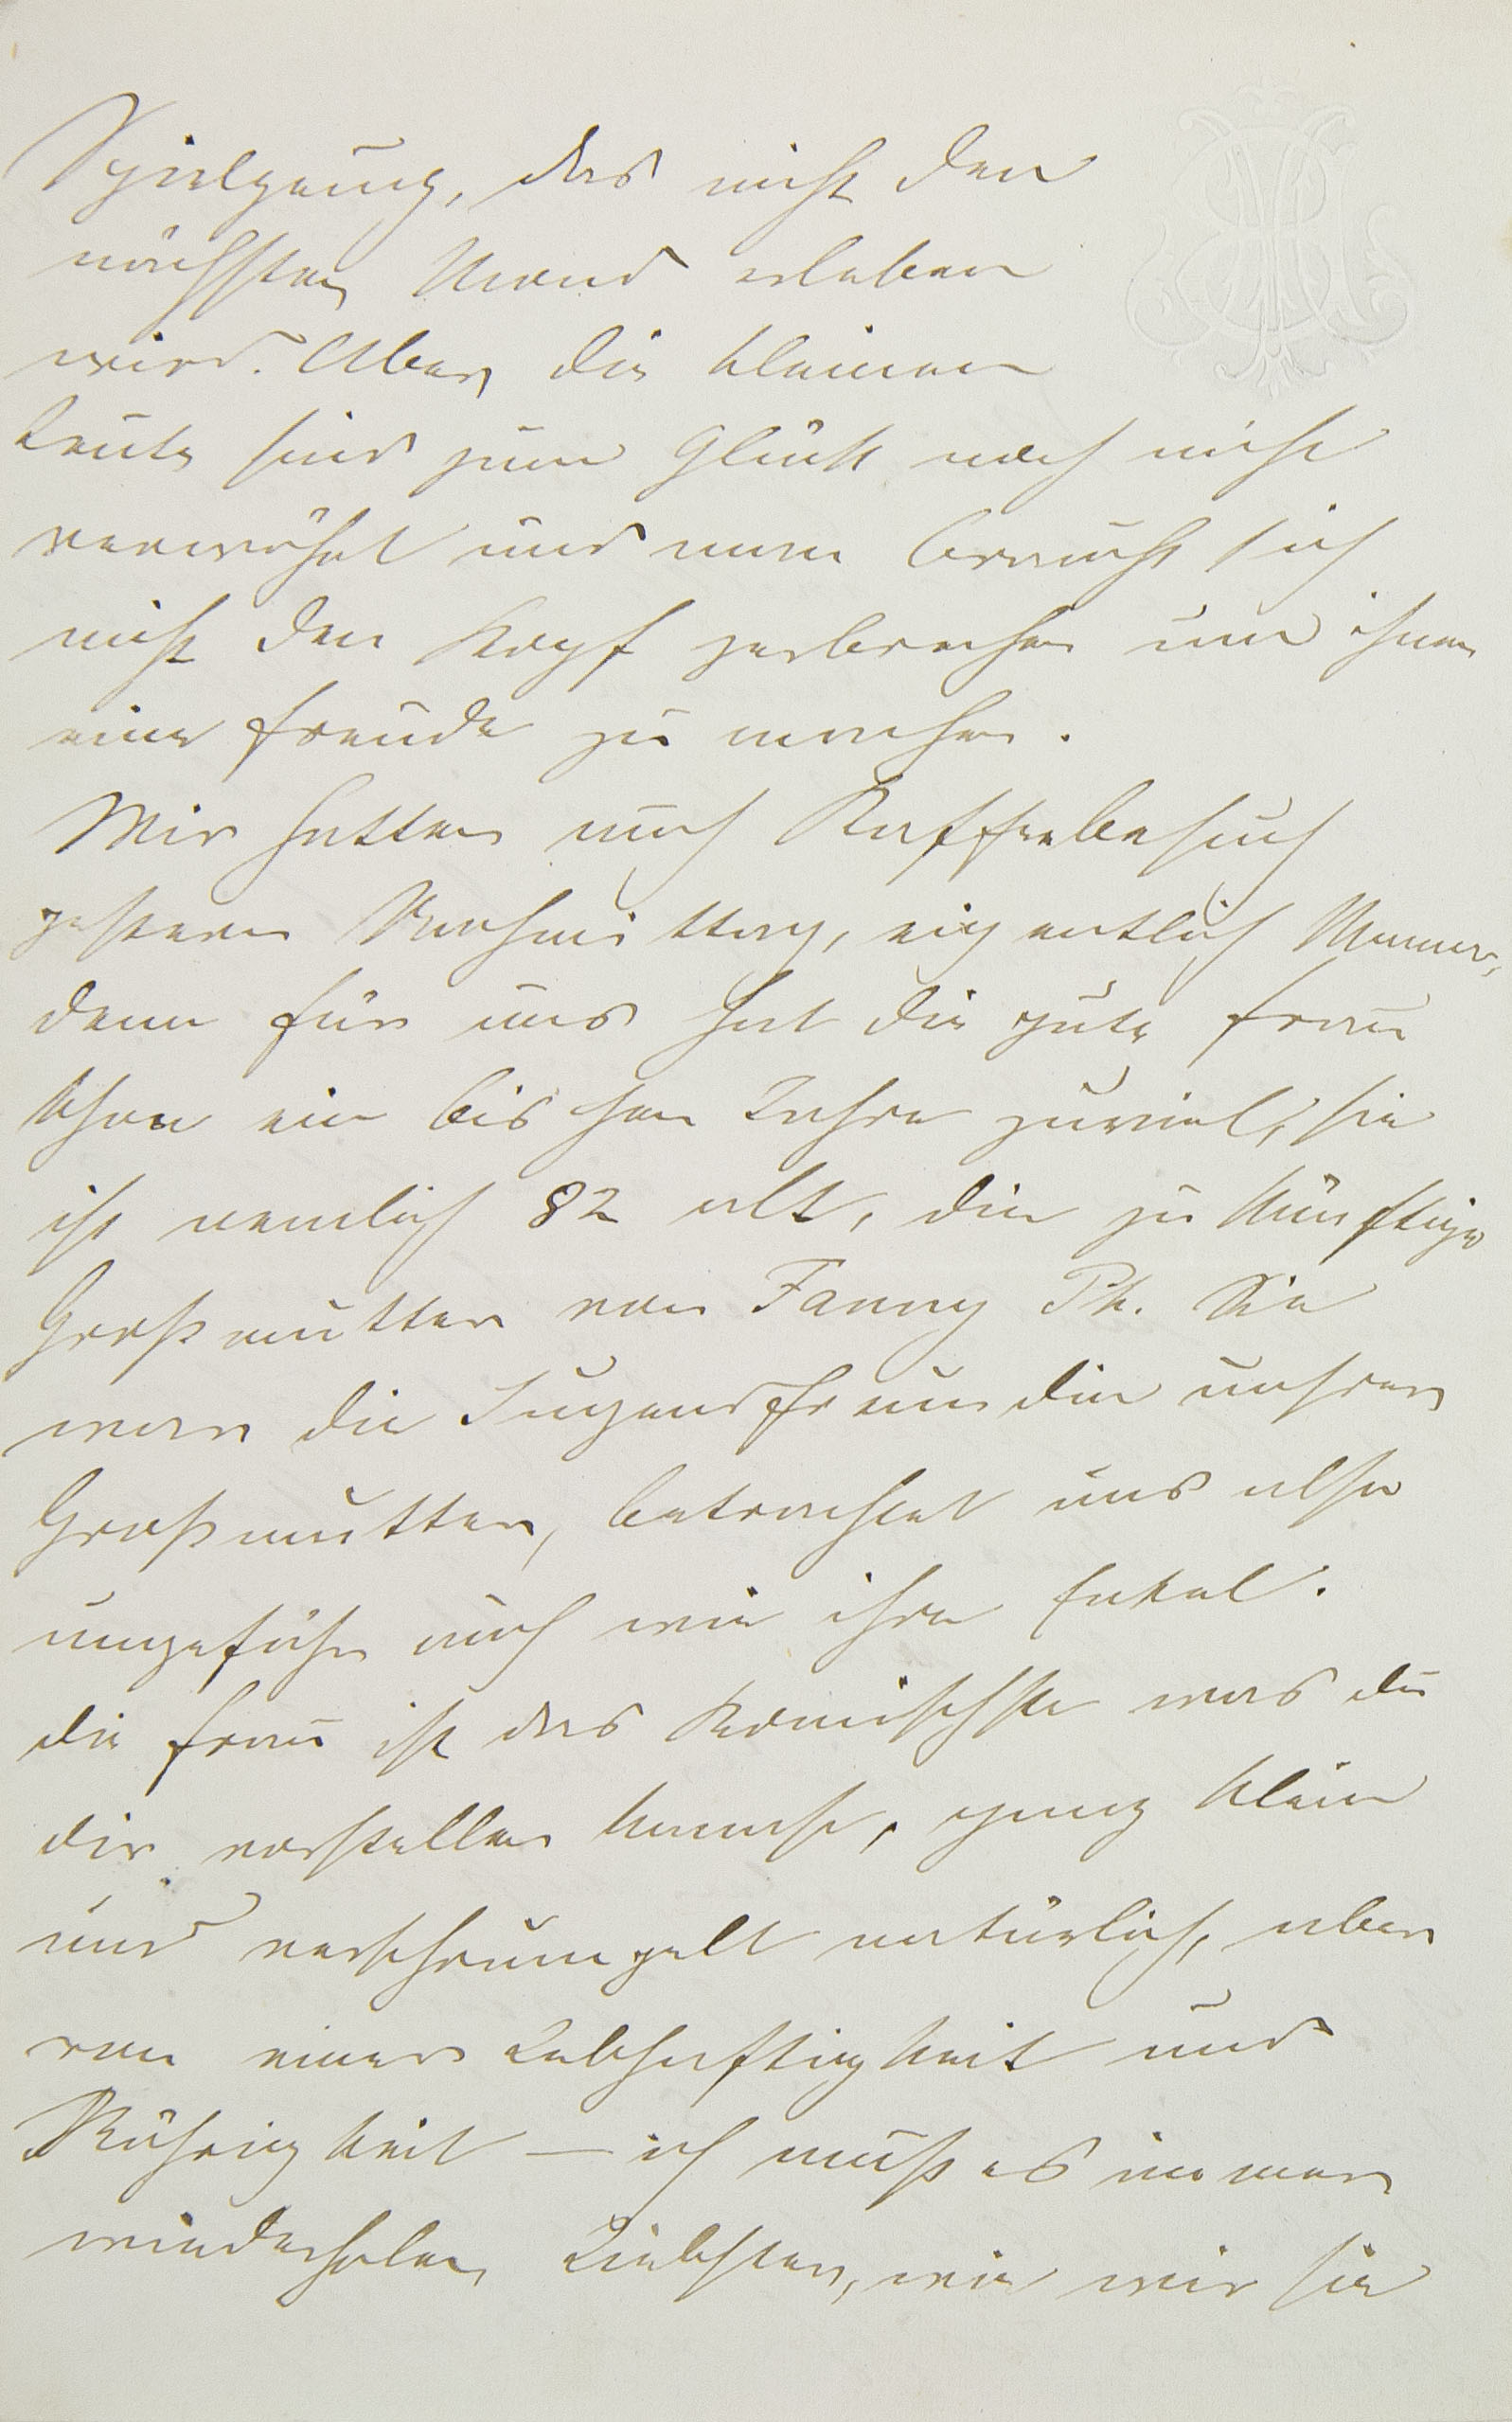 Spielzeug, das nicht den
nächsten Mond erleben
wird. Aber die kleinen
Leute sind zum Glück noch nicht
verwöhnt und man braucht sich
nicht den Kopf zerbrechen um ihnen
eine Freude zu machen.
Wir hatten auch Kaffeebesuch
gestern Nachmittag, eigentlich Mama,
denn für uns hat die gute Frau
schon ein bischen Jahre zuviel, sie
ist nemlich 82 alt, die zukünftige
Großmutter von Fanny Ph. Sie
war die Jugendfreundin unsrer
Großmutter, betrachtet uns also
ungefähr auch wie ihre Enkel.
die Frau ist das Komischste was du
dir vorstellen kannst, ganz klein
und verschrumpelt natürlich, aber
von einer Lebhaftigkeit und
Rührigkeit — ich muß es immer
wiederholen, Liebster, wie wir sie